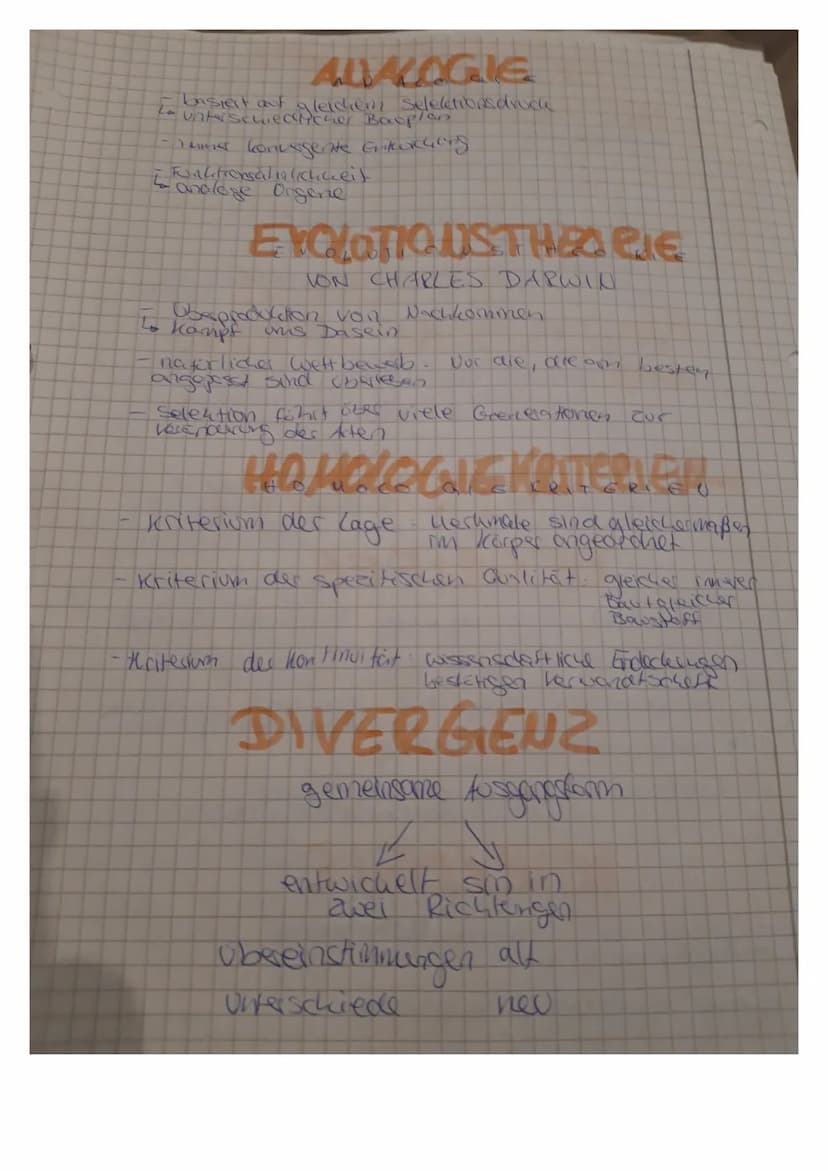 ANALOGIE
- basiert auf gleichem Selektionsdruck
↳ unterschiedlicher Bauplan
- immer konvergente Entwicklung
- Funktionsähnlichkeit
↳ analoge Organe
EVOLUTIONSTHEORIE
VON CHARLES DARWIN
- Überproduktion von Nachkommen
↳ Kampf ums Dasein
- natürlicher Wettbewerb. Nur die, die am besten
angepasst sind überleben
- Selektion führt über viele Generationen zur
Veränderung der Arten
HOMOLOGIEKRITERIEN
- Kriterium der Lage: Merkmale sind gleichermaßen
im Körper angeordnet
- Kriterium der spezifischen Qualität: gleicher innerer
Bau + gleicher
Baustoff
- Kriterium der Kontinuität: wissenschaftliche Endockungen
bestätigen Verwandtschaft
DIVERGENZ
gemeinsame Ausgangsform
entwickelt sin in
zwei Richtungen
Übereinstimmungen alt
Unterschiede neu